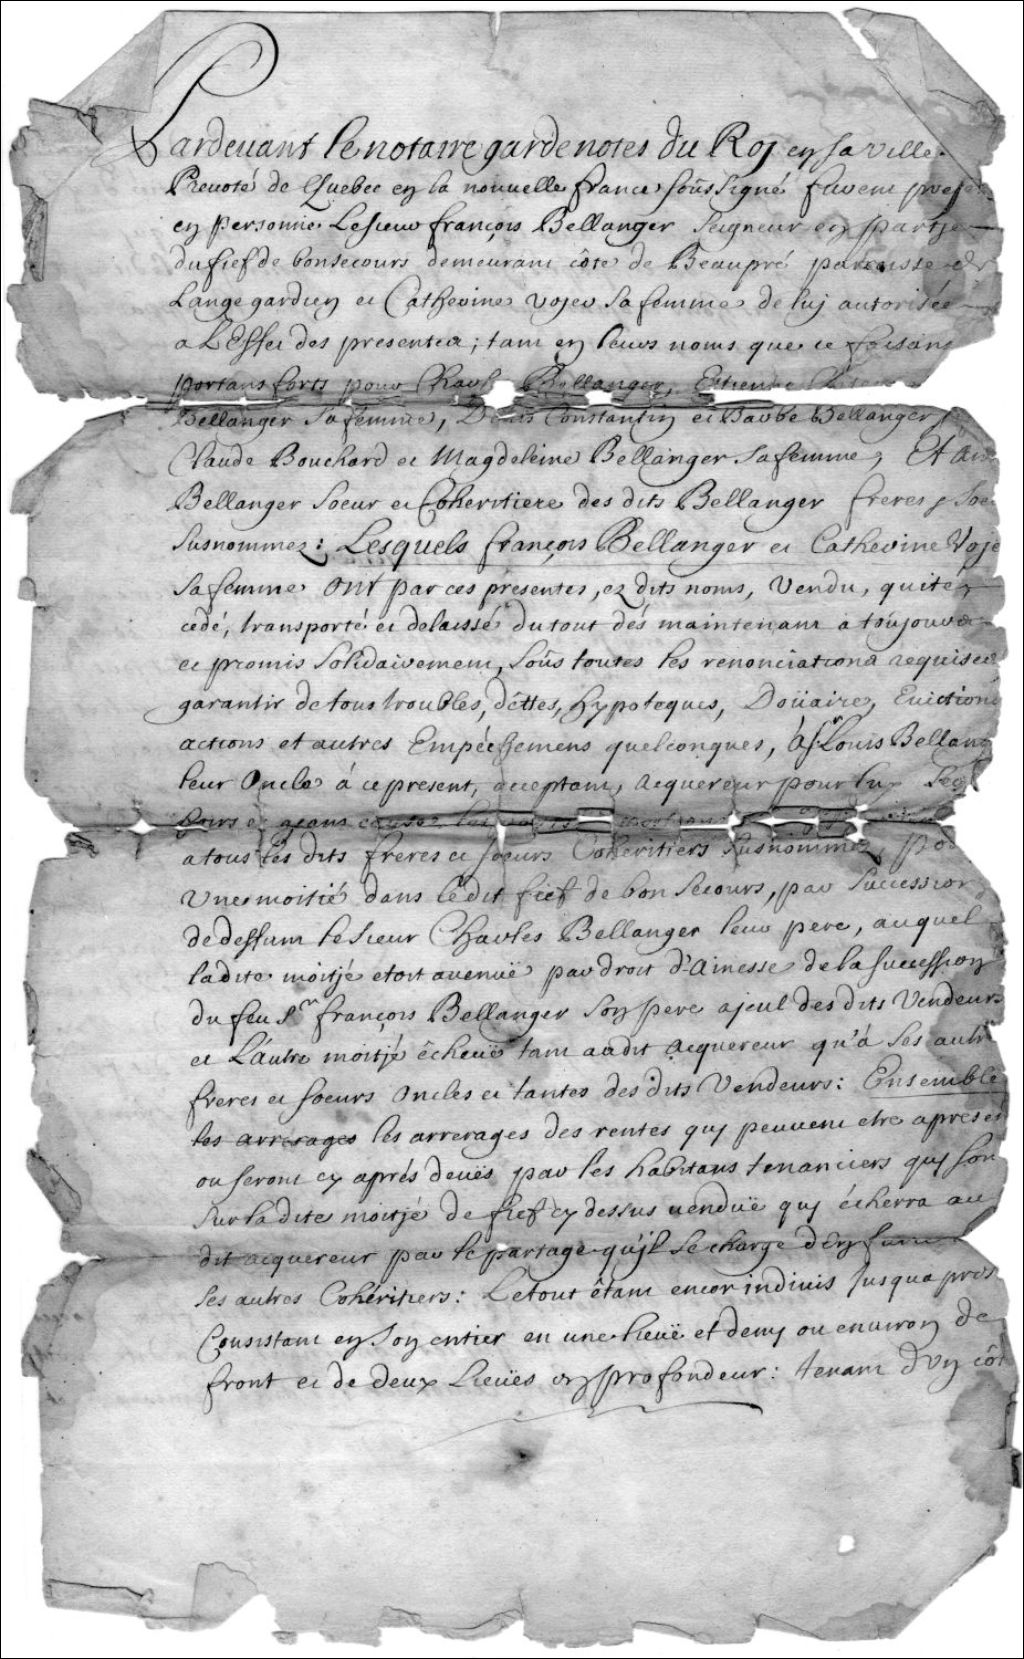 Pardevant le notaire garde notes du Roy en sa ville
Prevoté de Quebec en la nouvelle france soûs signé furent
en personne Le sieur françois Bellanger seigneur en partje
du fief de bonsecours demeurant côte de Beaupré paroisse de
L'ange gardien et Catherine voyer sa femme de luj autorisée
a L'Effet des presentes; tant en leurs noms que se faisant
portans forts pour Charles Bellanger, Etienne
Bellanger sa femme, Denis Constantin et Barbe Bellanger
Claude Bouchard et Magdeleine Bellanger sa femme, Et
Bellanger soeur et Coheritiere des dits Bellanger freres &
susnommez: Lesquels françois Bellanger et Catherine Voje
sa femme ont par ces presentes, ez dits noms, Vendu, quité,
cedé, transporté et delaissé du tout dés maintenant a toûjours
et promis solidairement, soûs toutes les renonciations requises
garantir de tous troubles, dettes, hypoteques, Doüaire, Evictions
actions et autres Empéchemens quelconques, à Sr. Louis Bellang
leur Oncle à ce present, acceptant, acquereur pour luy
a tous les dits freres et soeurs Coheritiers susnommez,
Une moitié dans le dit fief de bon secours, par succession
de deffunt le sieur Charles Bellanger leur pere, auquel
ladite moitjé etoit avenuë par droit d'Ainesse de la succession
du feu Sr françois Bellanger son pere ajeul des dits Vendeurs
et L'autre moitjé êcheuë tant audit acquereur qu'à ses autr
freres et soeurs Oncles et tantes des dits Vendeurs: Ensemble
les arrerages les arrerages des rentes quj peuvent etre
ou seront cy aprés deuës par les habitans tenanciers quj son
sur la dite moitjé de fief cy dessus venduë quj écherra au
dit acquereur par le partage qu'jl se charge d'en faire
ses autres Cohéritiers: Le tout êtant encor indivis jusqua
Consistant en son entier en une lieuë et demy ou environ de
front et de deux Lieuës en profondeur: tenant d'un côt